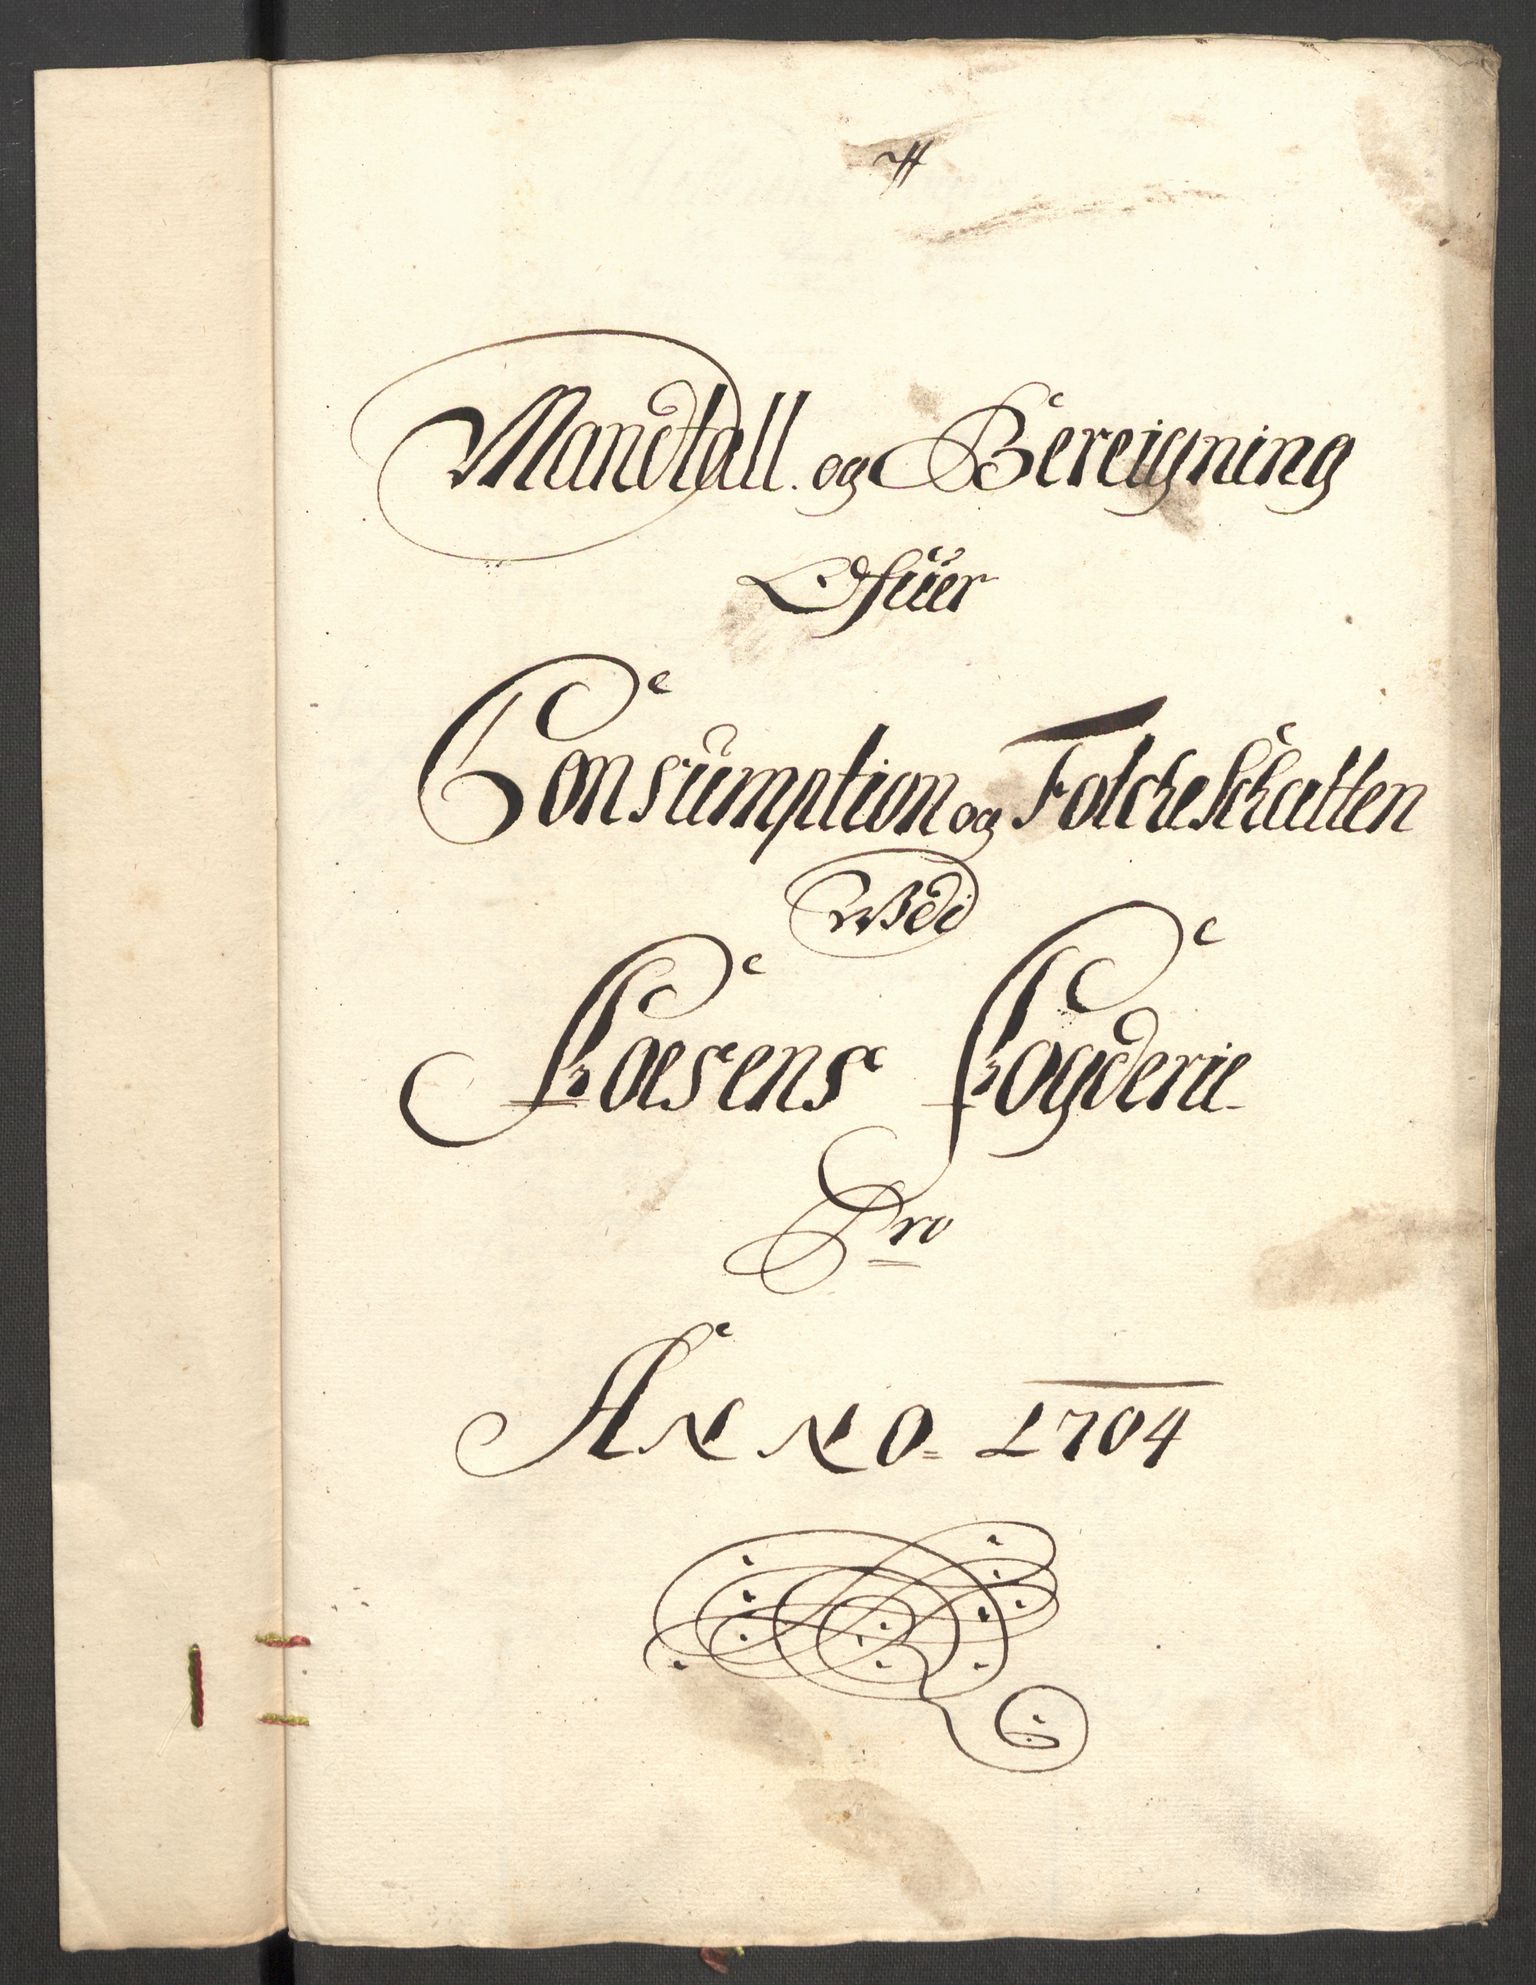 Mandtall og Bereigning
Ofuer
Consumption og FolckeSchatten
Udi
Fosens Fogderie
Pro
ANNO 1704